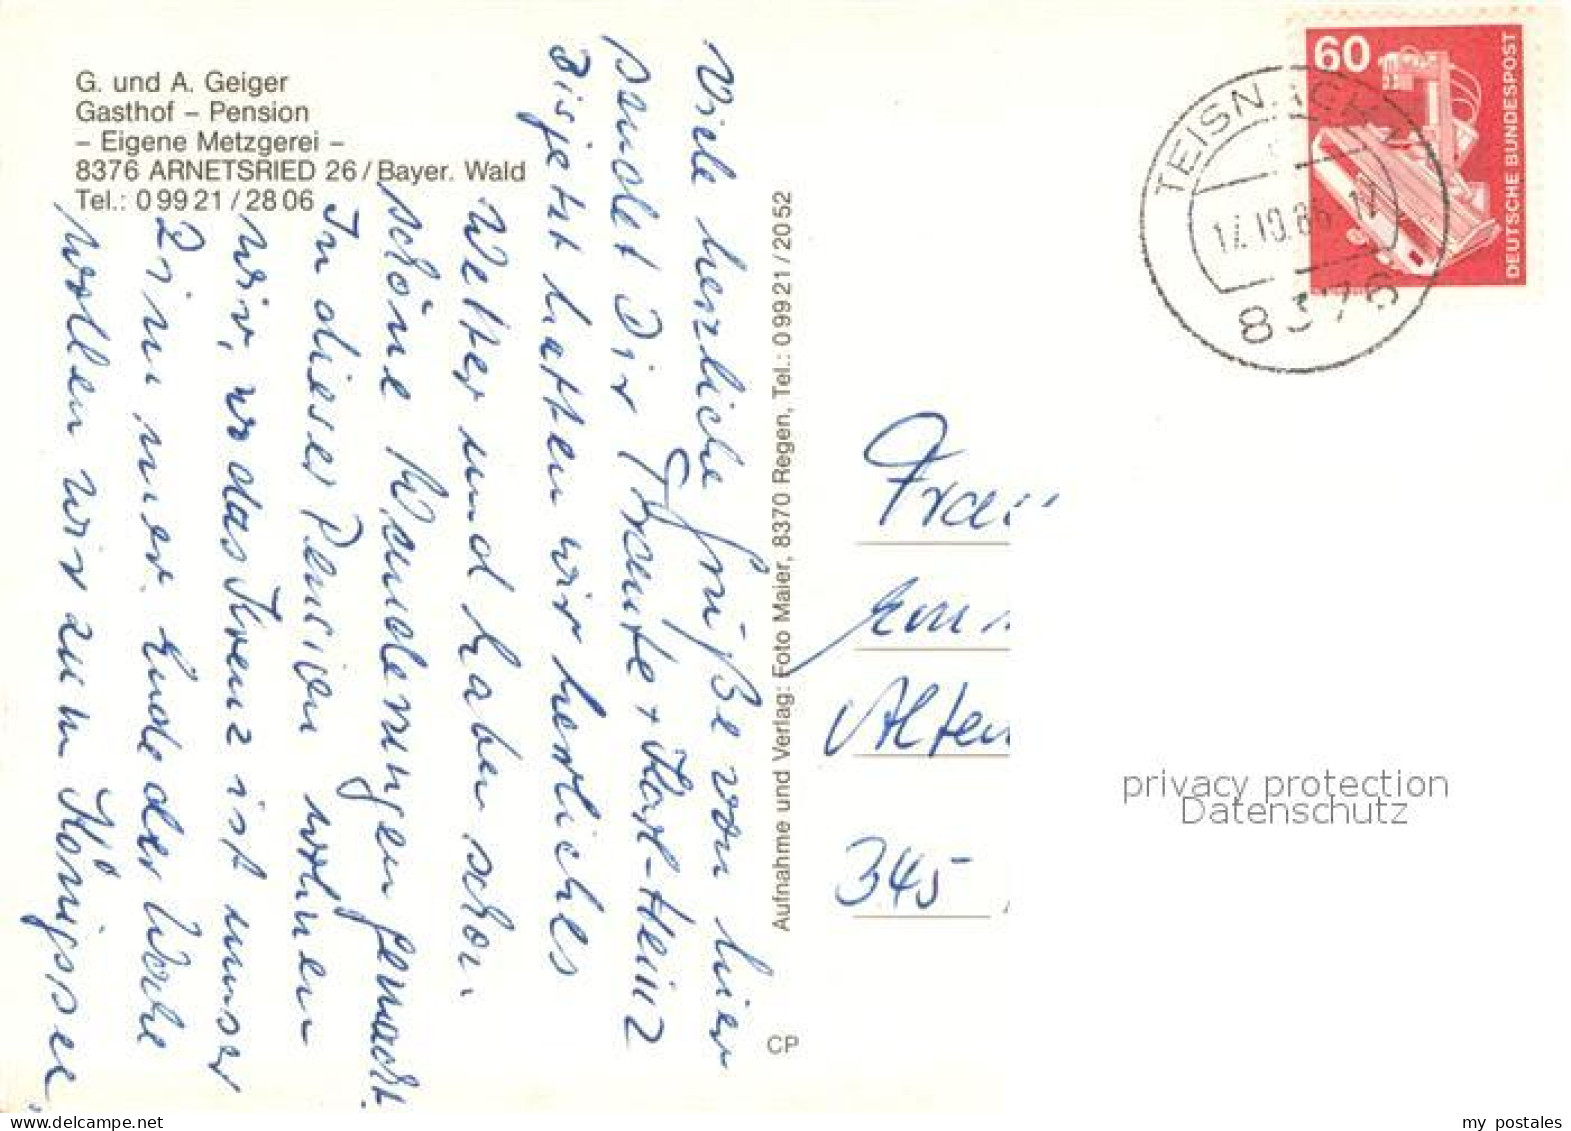 G. und A. Geiger
Gasthof – Pension
– Eigene Metzgerei –
8376 ARNETSRIED 26 / Bayer. Wald
Tel.: 0 99 21 / 28 06
Viele herzliche Grüße von hier
sendet Dir Traute + Karl-Heinz
Bis jetzt hatten wir herrliches
Wetter und haben schon
schöne Wanderungen gemacht.
In dieser Pension wohnen
wir, wo das Kreuz ist unser
Zimmer. Ende der Woche
wollen wir zum Königssee.
Aufnahme und Verlag: Foto Maier, 8370 Regen, Tel.: 0 99 21 / 20 52
CP
60
DEUTSCHE BUNDESPOST
TEISNACH 1
8376
Frau
Alten
345
privacy protection
Datenschutz
my postales